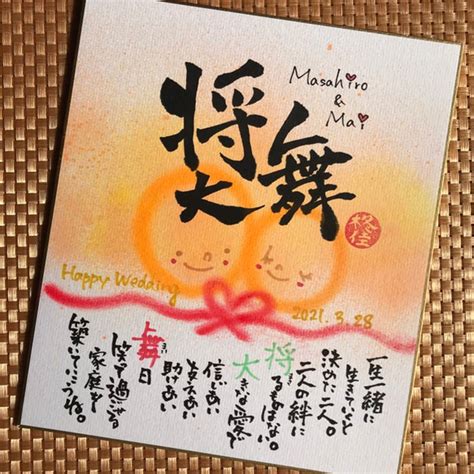 将大
舞
Masahiro
&
Mai
Happy Wedding
2021.3.28
一生一緒に
生きていこうと
決めた二人。
二人の絆に
将るものはない。
大きな愛で
信じあい
支えあい
助けあい
舞日
笑って過ごせる
家庭を
築いていこうね。